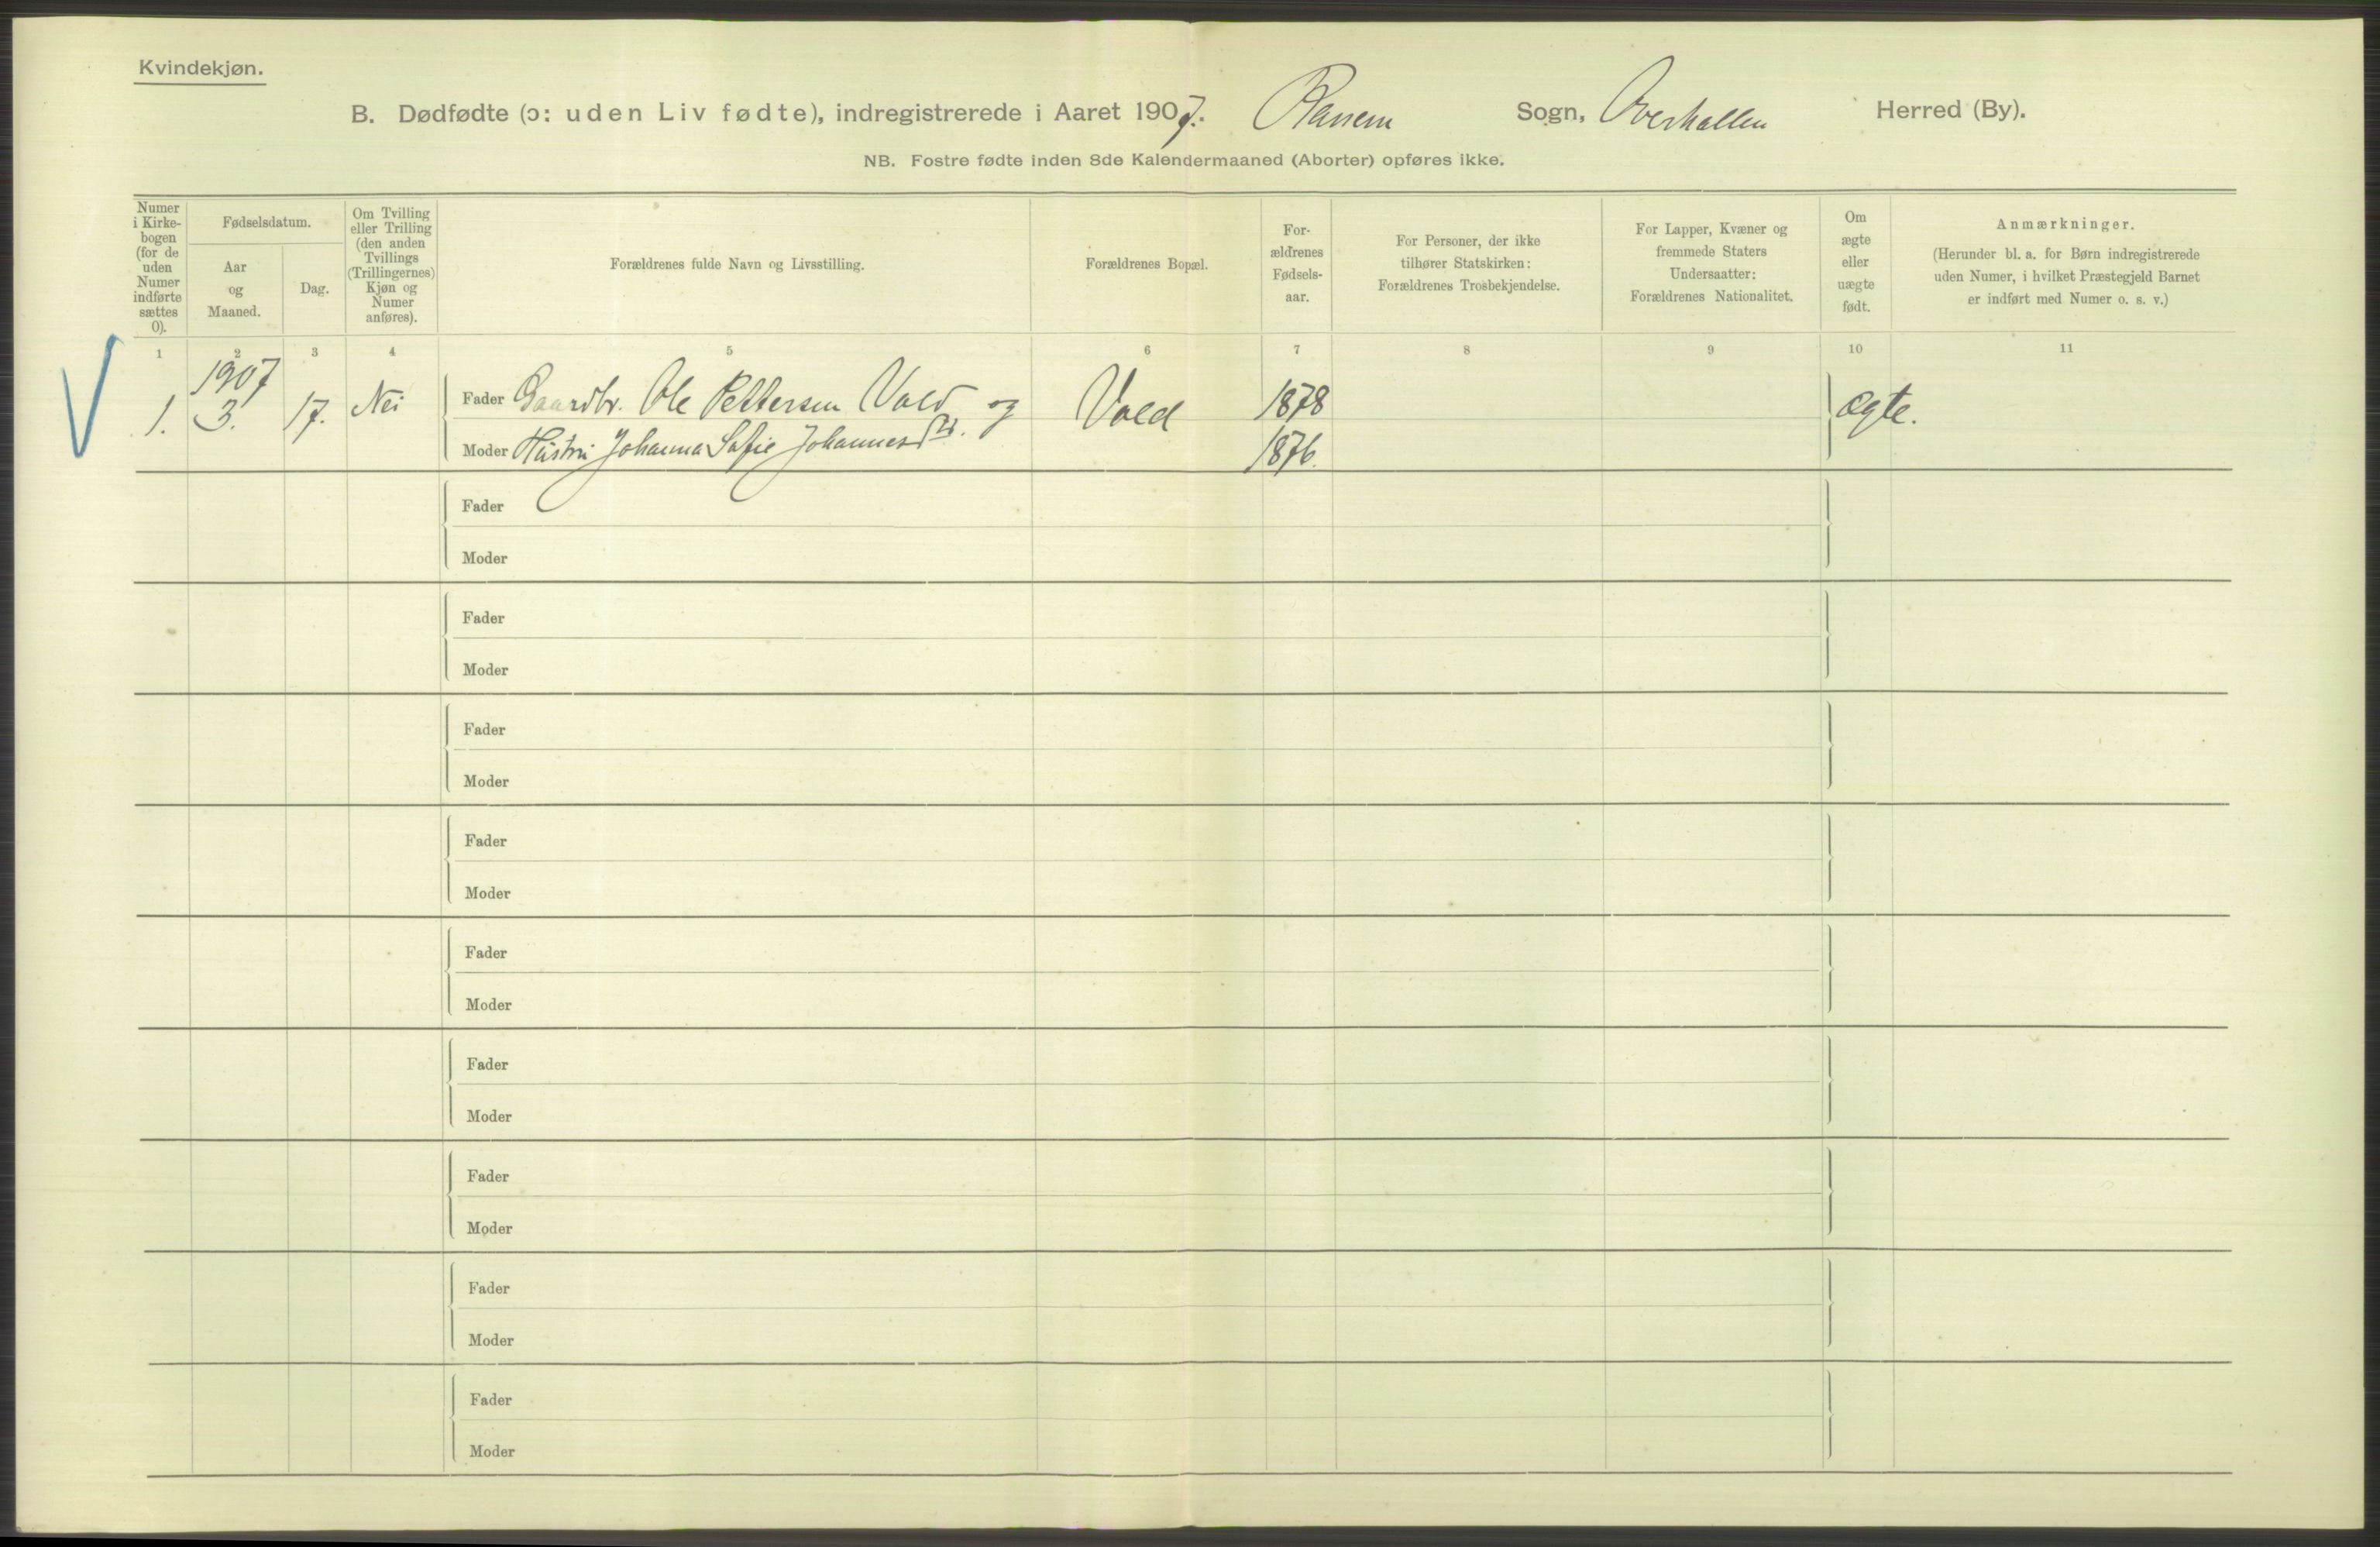 Kvindekjøn.
B. Dødfødte (ɔ: uden Liv fødte), indregistrerede i Aaret 1907. Ranem Sogn, Overhallen Herred (By).
NB. Fostre fødte inden 8de Kalendermaaned (Aborter) opføres ikke.
Numer i Kirke-bogen (for de uden Numer indførte sættes 0).
Fødselsdatum.
Aar og Maaned.
Dag.
Om Tvilling eller Trilling (den anden Tvillings (Trillingernes) Kjøn og Numer anføres).
Forældrenes fulde Navn og Livsstilling.
Forældrenes Bopæl.
For-ældrenes Fødsels-aar.
For Personer, der ikke tilhører Statskirken: Forældrenes Trosbekjendelse.
For Lapper, Kvæner og fremmede Staters Undersaatter: Forældrenes Nationalitet.
Om ægte eller uægte født.
Anmærkninger.
(Herunder bl. a. for Børn indregistrerede uden Numer, i hvilket Præstegjeld Barnet er indført med Numer o. s. v.)
1 2 3 4 5 6 7 8 9 10 11
1907
1. 3. 17. Nei Fader Gaardbr. Ole Pettersen Vold og Vold 1878 ægte.
Moder Hustru Johanna Sofie Johannesdtr. 1876.
Fader
Moder
Fader
Moder
Fader
Moder
Fader
Moder
Fader
Moder
Fader
Moder
Fader
Moder
Fader
Moder
Fader
Moder